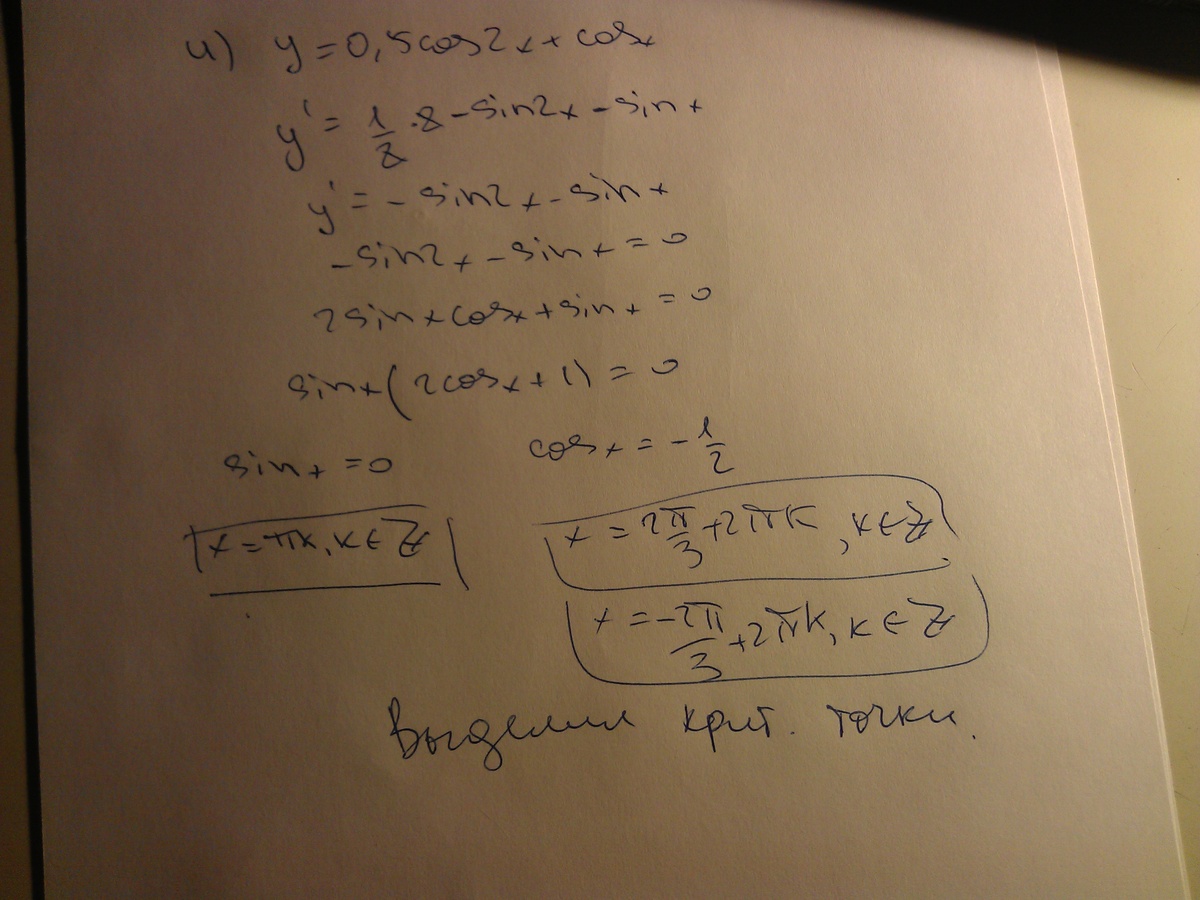 и) y = 0,5cos2x + cosx
y' = 1/2 · 2 - sin2x - sinx
y' = - sin2x - sinx
-sin2x - sinx = 0
2sinxcosx + sinx = 0
sinx(2cosx + 1) = 0
sinx = 0 cosx = - 1/2
x = πk, k ∈ Z x = 2π/3 + 2πk, k ∈ Z
x = -2π/3 + 2πk, k ∈ Z
Выделил крит. точки.